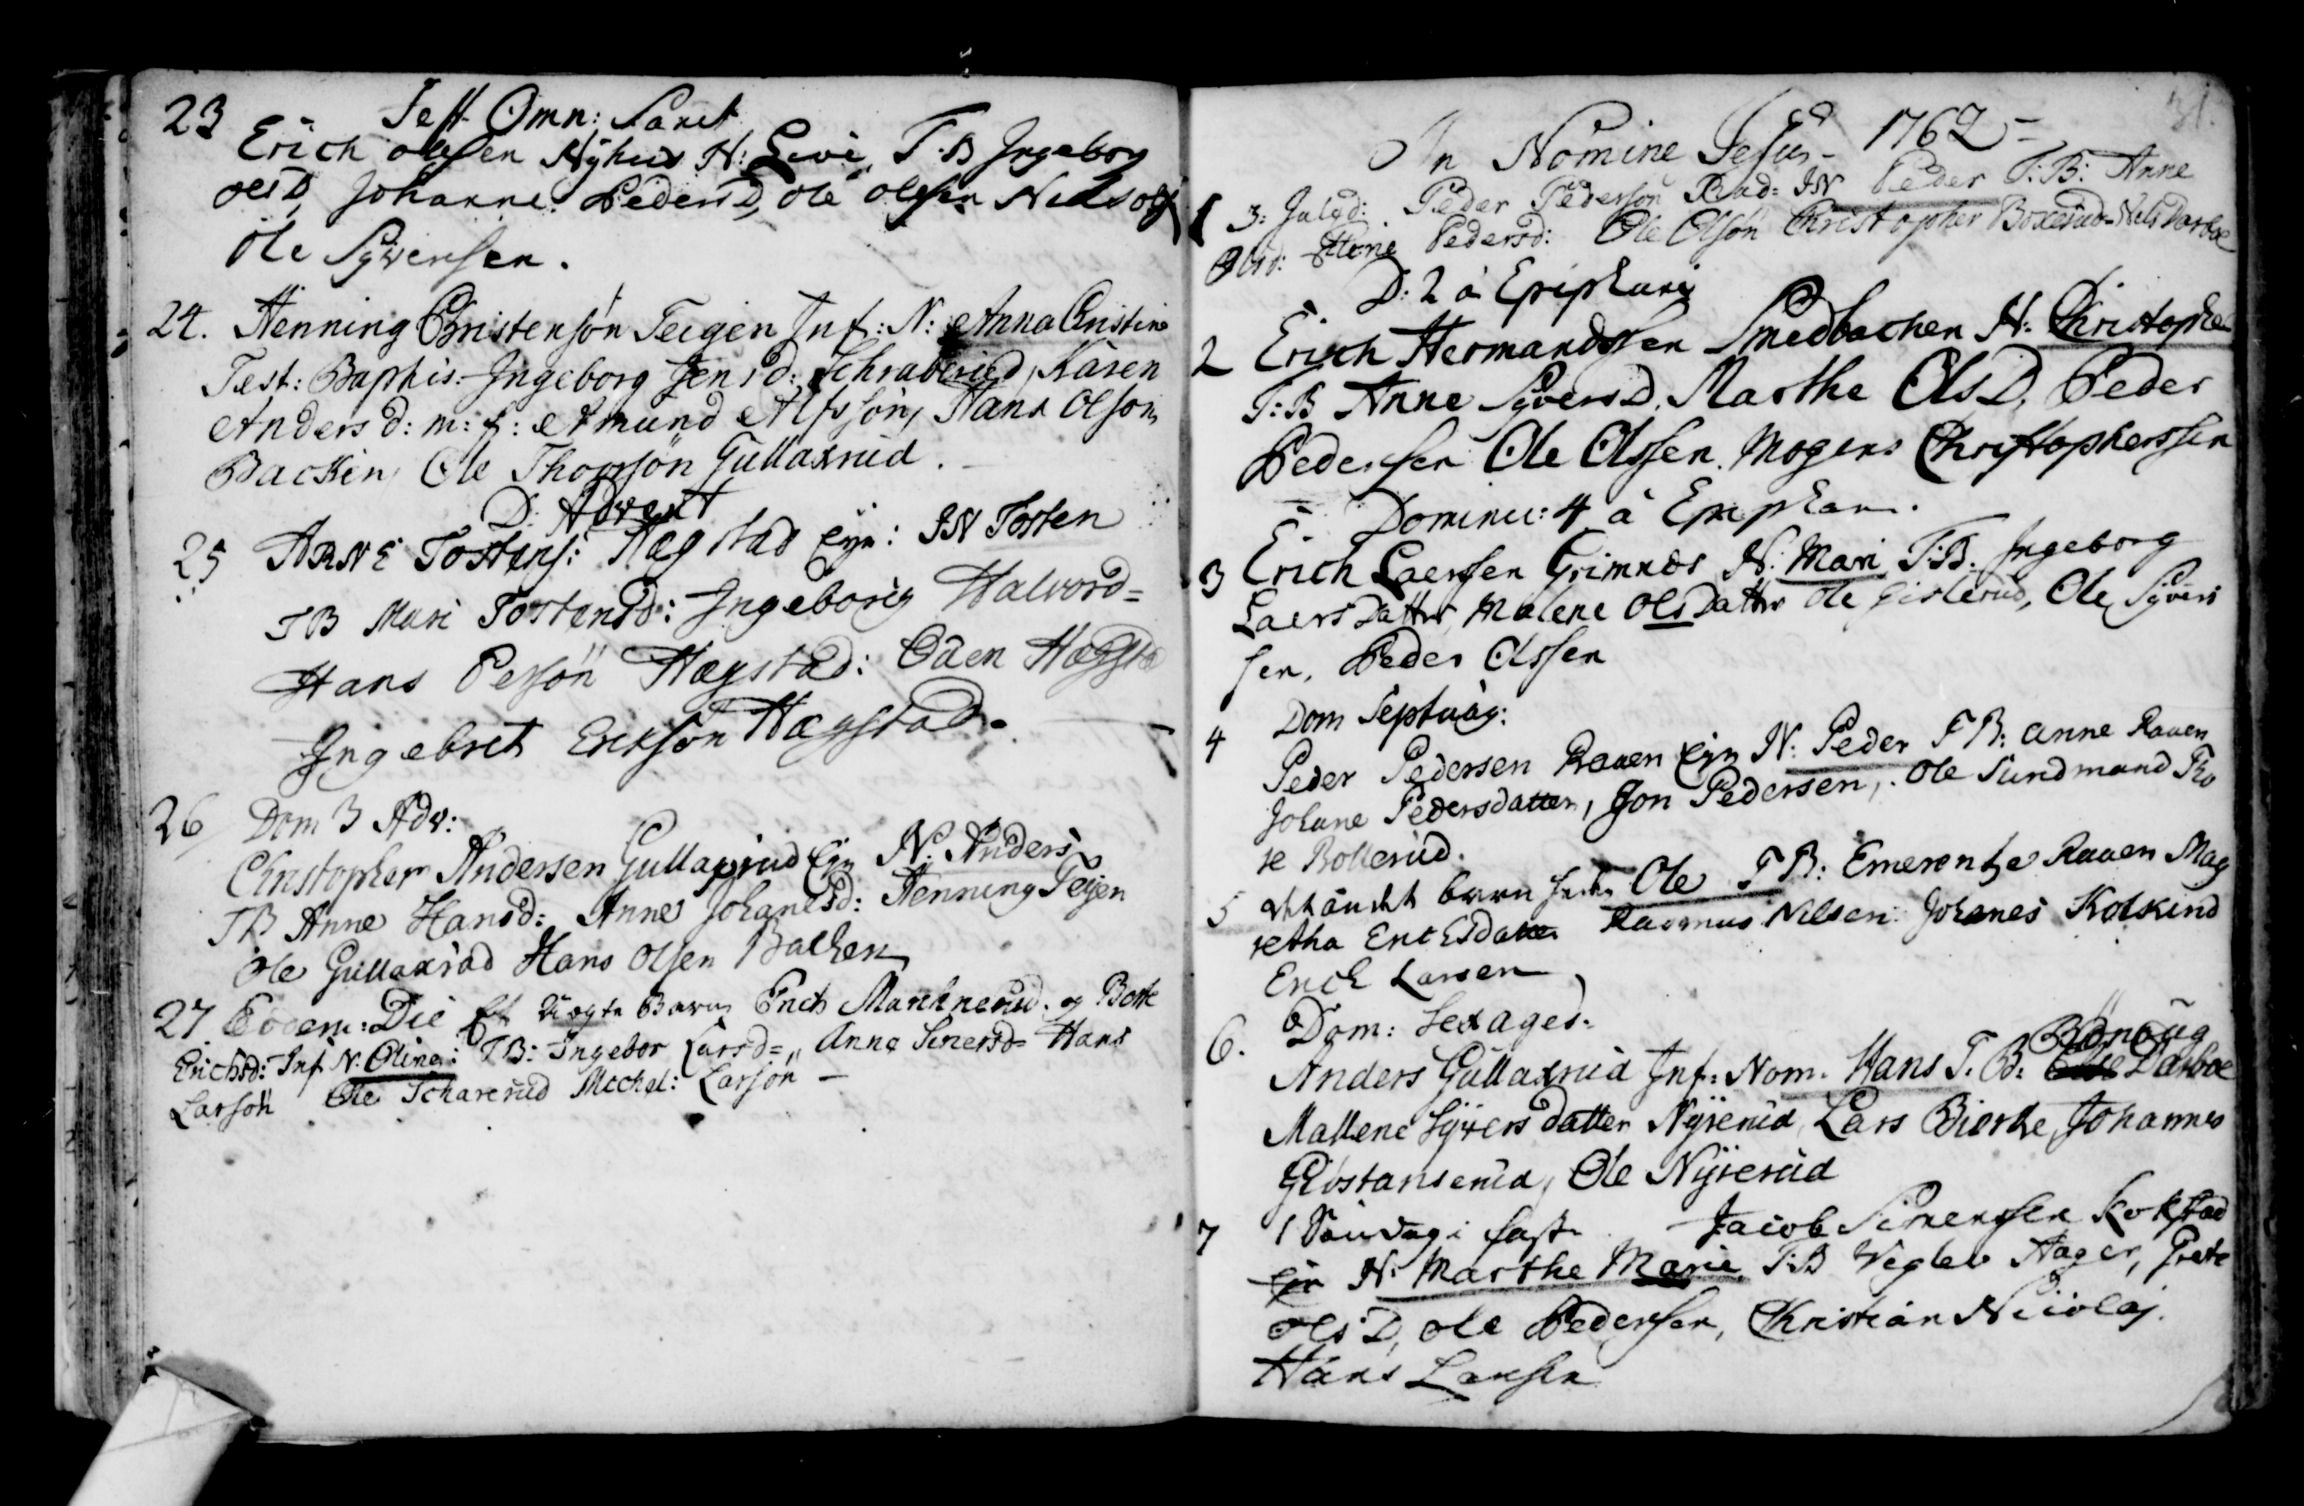 23 Fest Omn: Sanct
Erich olessen Nyhus N: Live, T.B Ingeborg
olsD, Johanne PedersD, ole olssen
ole Syversen.
24. Henning Christensøn Teigen Inf: N: Anna Cristine
Test: Baptis: Ingeborg Jensd: Schraberud, Karen
Andersd: m: f: Amund Alfsøn, Hans Olson
Backen, Ole Thorsøn Gullaxrud.
D: Advent
25 ARNE Tostens: Hægstad Eyn: IN Tosten
TB Mari Tostensd: Ingeborig Halvord=
Hans Persøn Hægstad: Oden Hægsta
Ingebret Erikson Hægstad.
26 Dom 3 Adv:
Christopher Andersen Gullaxrud Eyn N. Anders
TB Anne Hansd: Anne Johanesd: Henning Teyen
ole Gullaxrud Hans Olsen Backen
27. Eodem: Die Et Uægte Barn Erich og
Erichsd: Inf N. Olina: TB: Ingebor Larsd= Anne Hans
Larsøn Ole Scharerud Michel: Larsøn —
31.
In Nomine Jesus - 1762 -
1 3: Julyd: Peder Pedersøn IN Peder T:B: Anne
Olsd: Pedersd: Ole Olsøn Christopher Nils Darboe
D: 2 a Epiphani
2 Erich Hermandssen Smedbachen N: Christopher
T:B Anne SyversD. Marthe OlsD, Peder
Pedersen Ole Olssen. Mogens Christopherssen
Dominic: 4 a Epiphan.
3 Erich Laerssen Grimnæs N: Mari T:B. Ingeborg
Laersdatter, Malene Olsdatter ole Gislerud, Ole Syvers
sen, Peder Olssen
Dom Septuag:
4 Peder Pedersen Raaen Eyn N: Peder TB: anne Raaen
Johane Pedersdatter, Jon Pedersen, Ole Sundmand Tho
re Bollerud.
5 barn Ole TB: Emerentze Raaen Mag
retha Erichsdatter Rasmus Nilsen Johanes Kolskind
Erich Larsen
6. Dom: Sexages:
Anders Gullaxrud Inf: Nom. Hans T. B: Rønoug Darboe
Mallene Syversdatter Nyserud, Lars Bierke, Johannes
Gløstanserud, Ole Nyserud
7 1 Søndag i fast Jacob Simenssen Kokstad
Eyn N. Marthe Marie T:B Hager, Grete
OlsD, ole Pederssen, Christian Nicolaj.
Hans Larssen